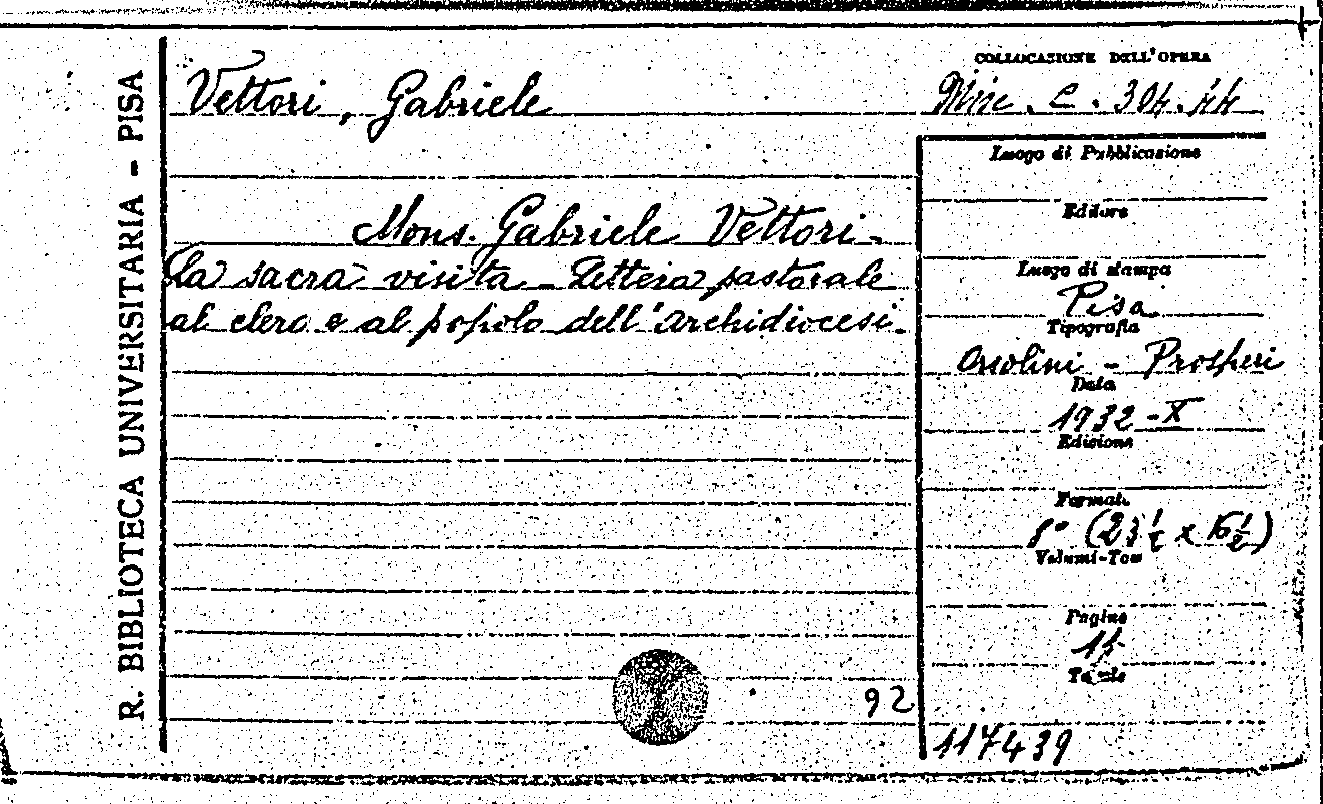 R. BIBLIOTECA UNIVERSITARIA - PISA
Vettori, Gabriele
COLLOCAZIONE DELL'OPERA
Misc. C. 304. 44
Mons. Gabriele Vettori -
La sacra visita - Lettera pastorale
al clero e al popolo dell'Archidiocesi.
Luogo di Pubblicazione
Editore
Luogo di stampa
Pisa
Tipografia
Orsolini - Prosperi
Data
1932-X
Edizione
Formato
8° (23 1/2 x 16 1/2)
Volumi-Tomi
Pagine
Tavole
92
117439